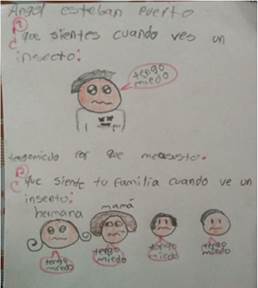 Angel esteban Puerto
P
¿Que sientes cuando ves un
insecto:
tengo
miedo
tengomiedo Por que measusto.
P
¿Que siente tu familia cuando ve un
insento:
heimana mamá
tengo
miedo
tengo
miedo
tengo
miedo
tengo
miedo